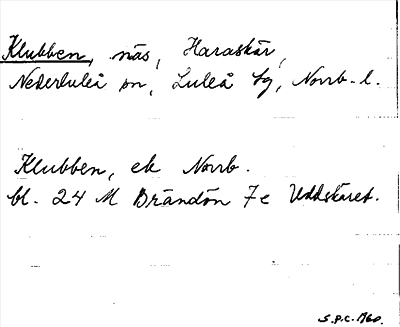 Klubben, näs, Haraskär,
Nederluleå sn, Luleå tg, Norrb. l.
Klubben, ek Norrb.
bl. 24 M Brändön 7c Uddskäret.
S.P.C. 1960.